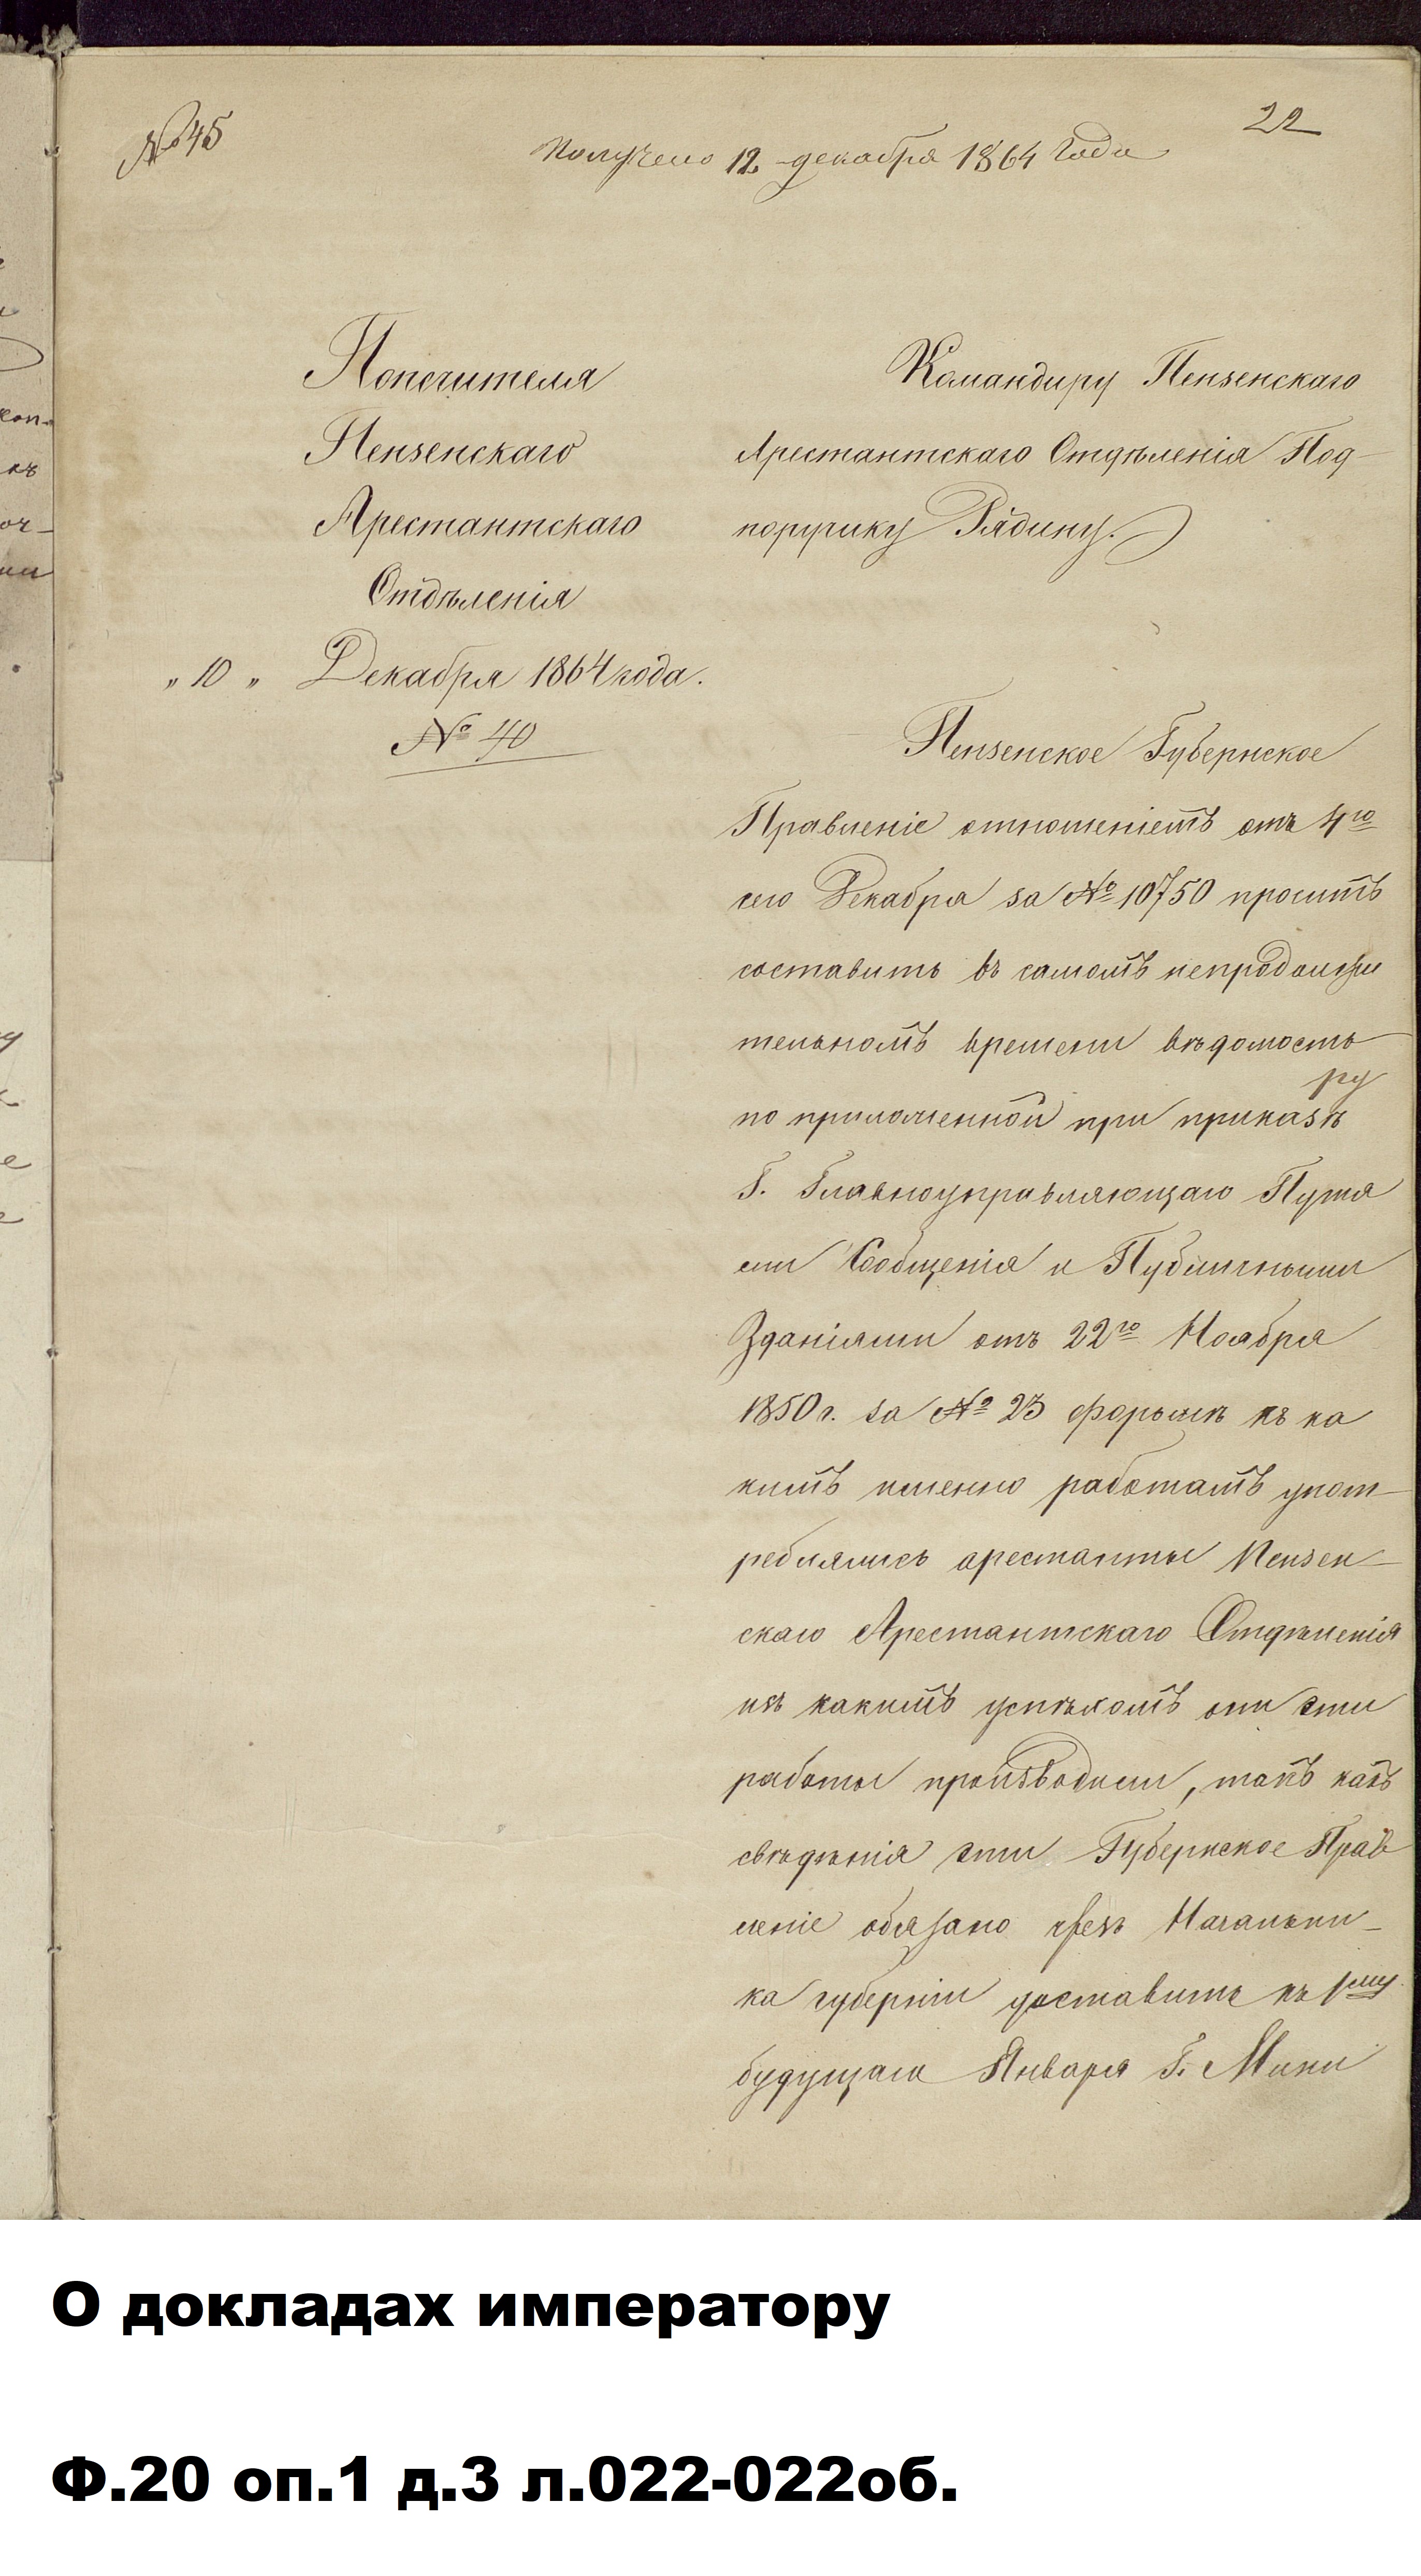 № 45
22
Получено 12 декабря 1864 года
Попечителя
Пензенскаго
Арестантскаго
Отдѣленія
„ 10 „ Декабря 1864 года.
№ 40
Командиру Пензенскаго
Арестантскаго Отдѣленія Под-
поручику Рядину.
Пензенское Губернское
Правленіе отношеніемъ отъ 4го
сего Декабря за № 10750 проситъ
составить въ самомъ непродолжи
тельномъ времени вѣдомость
ру
по приложенной при приказѣ
Г. Главноуправляющаго Путя
ми Сообщенія и Публичными
Зданіями отъ 22го Ноября
1850 г. за № 23 формѣ къ ка
кимъ именно работамъ упот-
реблялись арестанты Пензен-
скаго Арестантскаго Отдѣленія
и съ какимъ успѣхомъ они эти
работы производили, такъ какъ
свѣдѣнія эти Губернское Прав
леніе обязано чрезъ Начальни-
ка губерніи доставить къ 1му
будущаго Января Г. Мини
О докладах императору
Ф.20 оп.1 д.3 л.022-022об.